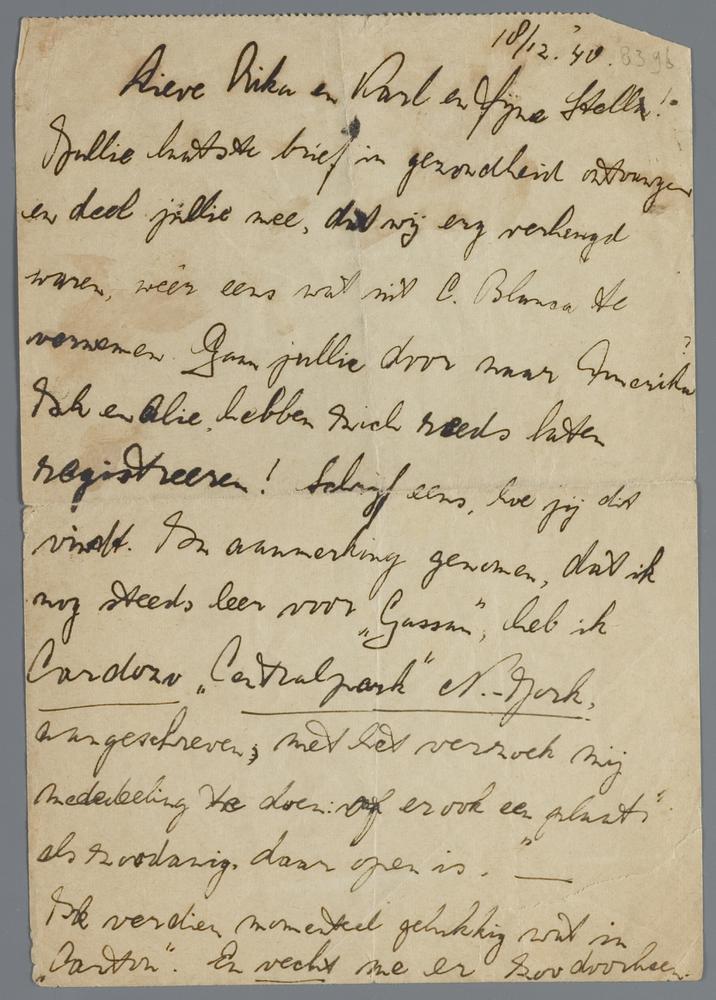 18/12.'40. 8396
Lieve Rika en Karl en fijne Stella!
Jullie laatste brief in gezondheid ontvangen
en deel jullie mee, dat wij erg verheugd
waren, weer eens wat uit C. Blanca te
vernemen. Gaan jullie door naar Amerika?
Ik en Alie, hebben mich reeds laten
registreeren! Schrijf eens, hoe jij dit
vindt. In aanmerking genomen, dat ik
nog steeds leer voor „Gassan", heb ik
Cardozo „Centralpark" N.-York,
aangeschreven; met het verzoek mij
mededeeling te doen: of er ook een plaats
als zoodanig daar open is. "—
Ik verdien momenteel gelukkig wat in
„Carton". En vecht me er zoo doorheen.